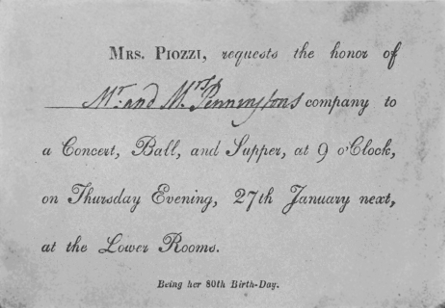 Mrs. Piozzi, requests the honor of
Mr. and Mrs. Pennington's company to
a Concert, Ball, and Supper, at 9 o'Clock,
on Thursday Evening, 27th January next,
at the Lower Rooms.
Being her 80th Birth-Day.